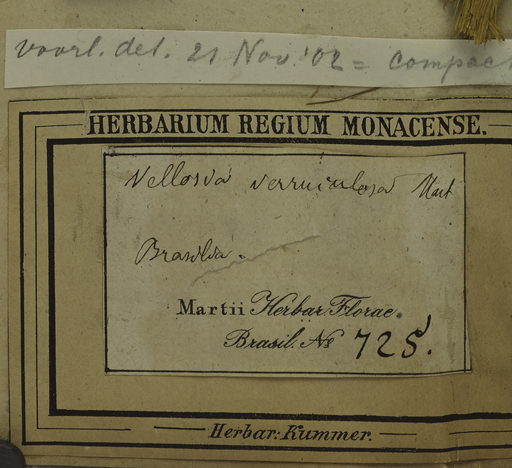 voorl. det. 21 Nov. '02 = compact
HERBARIUM REGIUM MONACENSE.
Vellosia Mart
Brasilia.
Martii Herbar. Florae.
Brasil. No 725.
Herbar: Kummer.